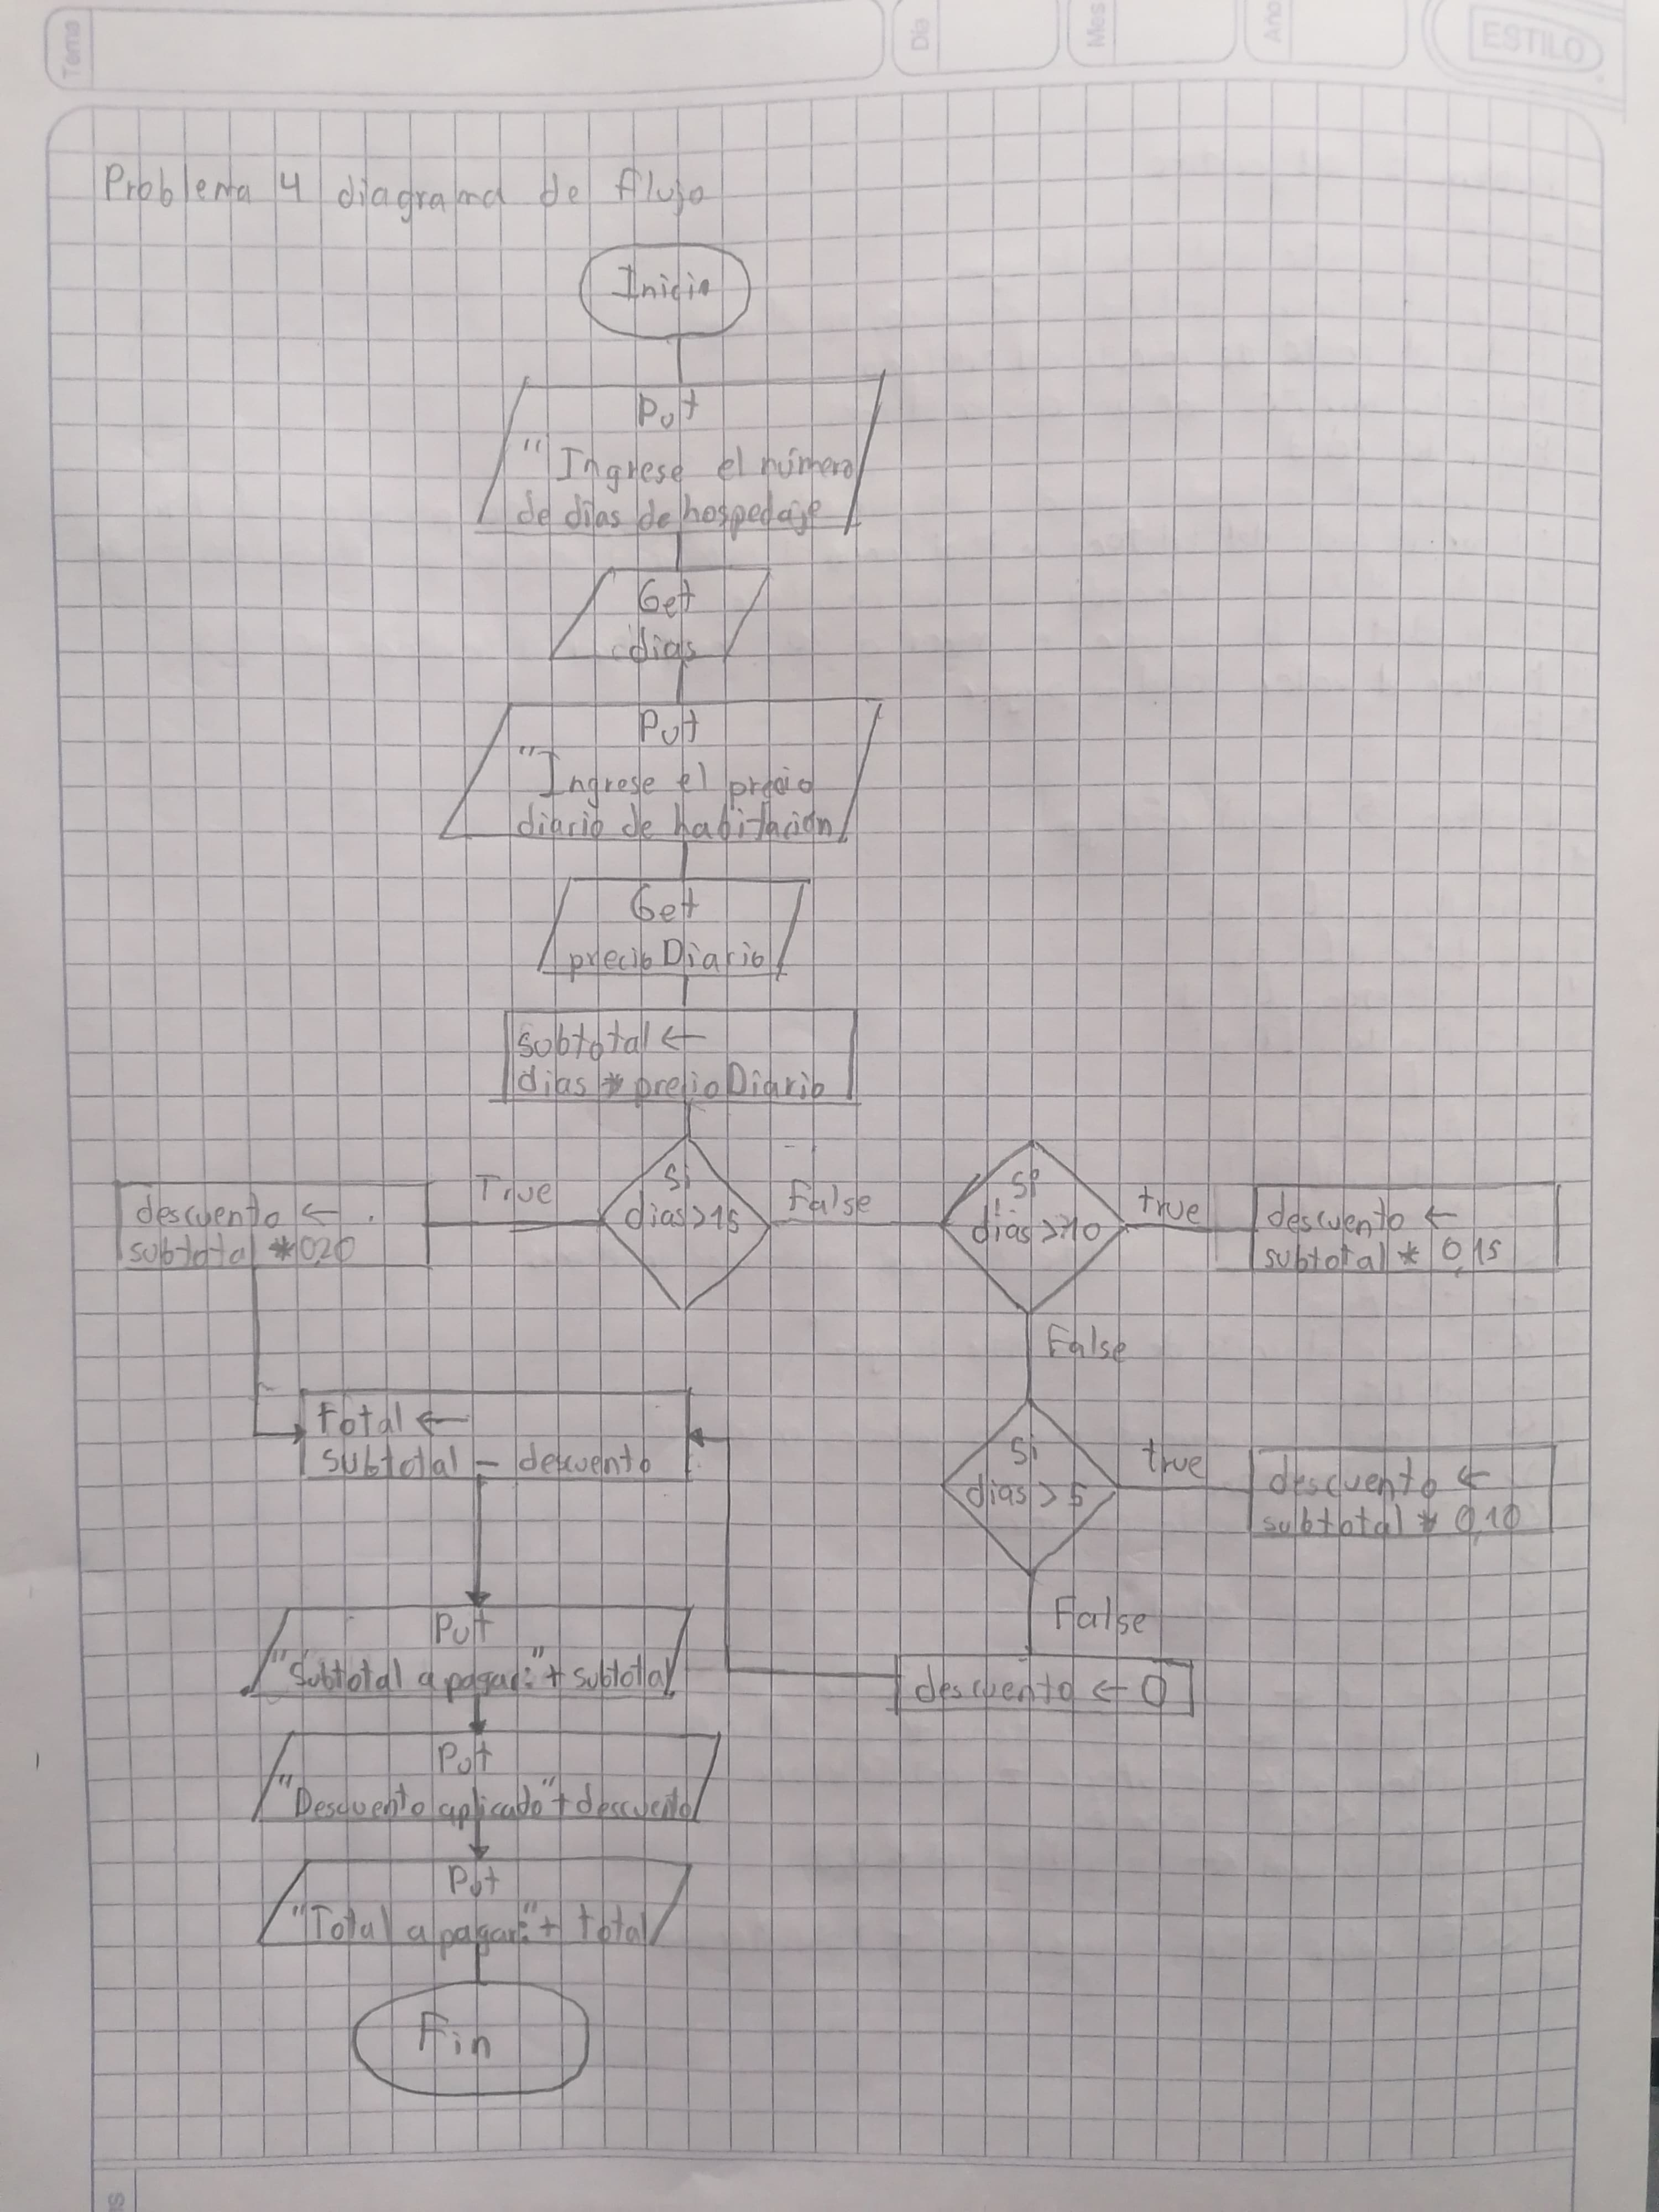 Tema
Día
Mes
Año
ESTILO
Problema 4 diagrama de flujo
Inicio
Put
"Ingrese el número
de días de hospedaje
Get
dias
Put
"Ingrese el precio
diario de habitación
Get
precioDiario
subtotal ←
dias * precioDiario
Si
dias > 15
True
descuento ←
subtotal * 0,20
False
Si
dias > 10
true
descuento ←
subtotal * 0,15
False
Si
dias > 5
true
descuento ←
subtotal * 0,10
False
descuento ← 0
Total ←
subtotal - descuento
Put
"Subtotal a pagar:" + subtotal
Put
"Descuento aplicado" + descuento
Put
"Total a pagar:" + total
Fin